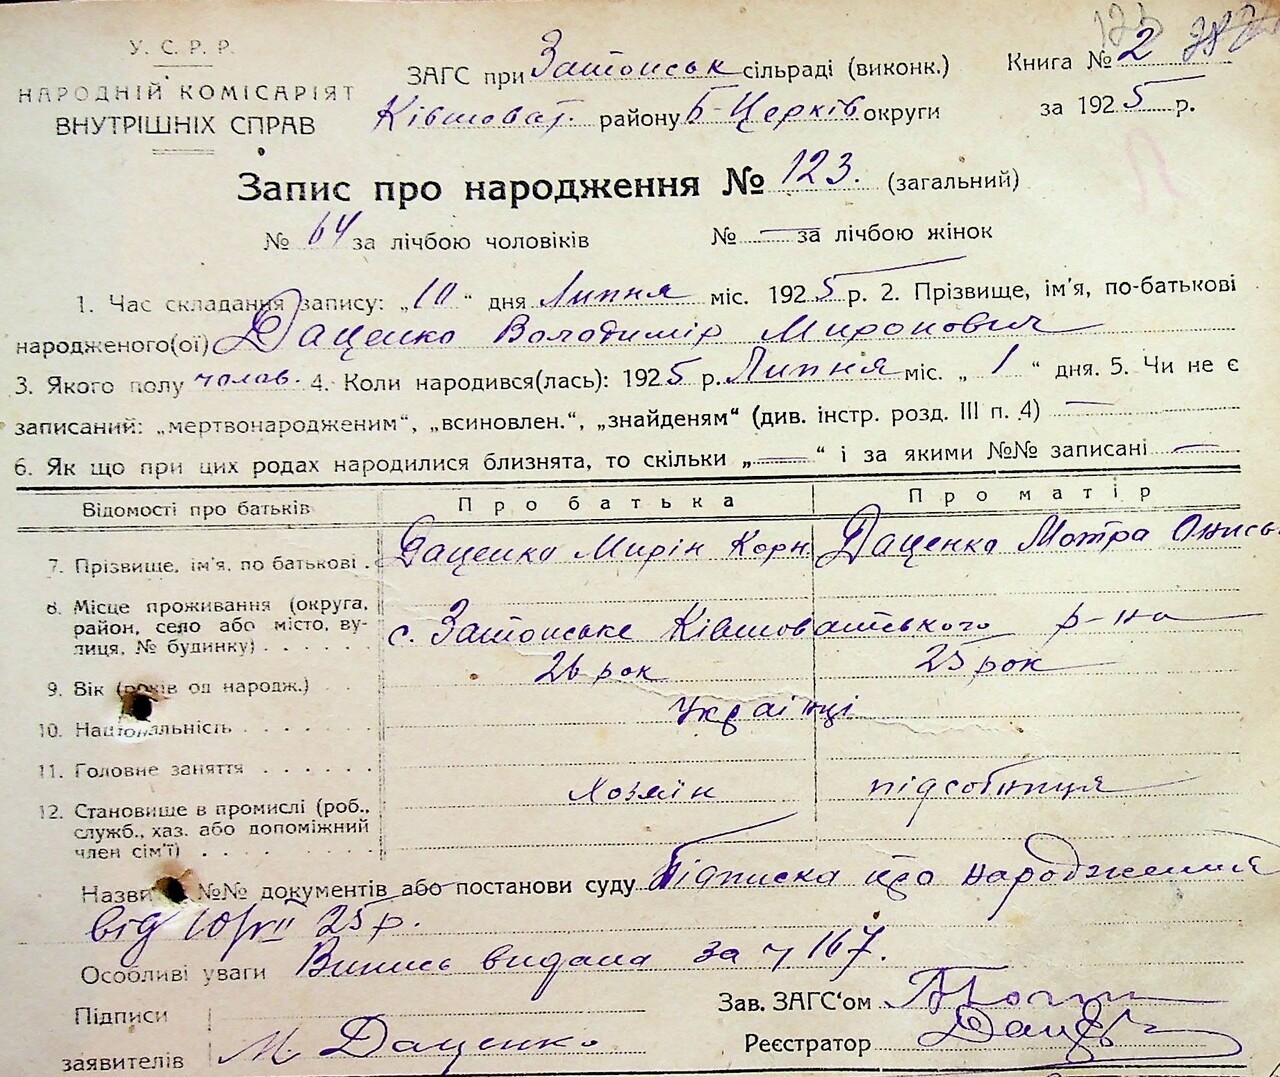 У. С. Р. Р.
НАРОДНІЙ КОМІСАРІЯТ
ВНУТРІШНІХ СПРАВ
ЗАГС при Затонськ сільраді (виконк.)
Ківшоват. району Б-Церків округи
Книга № 2
за 1925 р.
Запис про народження № 123. (загальний)
№ 64 за лічбою чоловіків № — за лічбою жінок
1. Час складання запису: „10“ дня Липня міс. 1925 р. 2. Прізвище, ім'я, по-батькові
народженого(ої) Даценко Володимір Миронович
3. Якого полу чолов. 4. Коли народився(лась): 1925 р. Липня міс. „1“ дня. 5. Чи не є
записаний: „мертвонародженим“, „всиновлен.“, „знайденям“ (див. інстр. розд. III п. 4) —
6. Як що при цих родах народилися близнята, то скільки „—“ і за якими №№ записані —
Відомості про батьків Про батька Про матір
7. Прізвище, ім'я, по батькові . Даценко Мирін Корн Даценко Мотра Онись.
8. Місце проживання (округа,
район, село або місто, ву-
лиця, № будинку) . . . . . с. Затонське Ківшоватського р-на
9. Вік (років од народж.) 26 рок 25 рок
10. Національність . . . . . . Українці
11. Головне заняття . . . . . .
12. Становище в промислі (роб.,
служб., хаз. або допоміжний
член сім'ї) . . . . . . . Хозяїн підсобниця
Назви №№ документів або постанови суду Підписка про народження
від 10/VII 25 р.
Особливі уваги Випись видана за ч 167.
Підписи
заявителів М. Даценко
Зав. ЗАГС'ом
Реєстратор